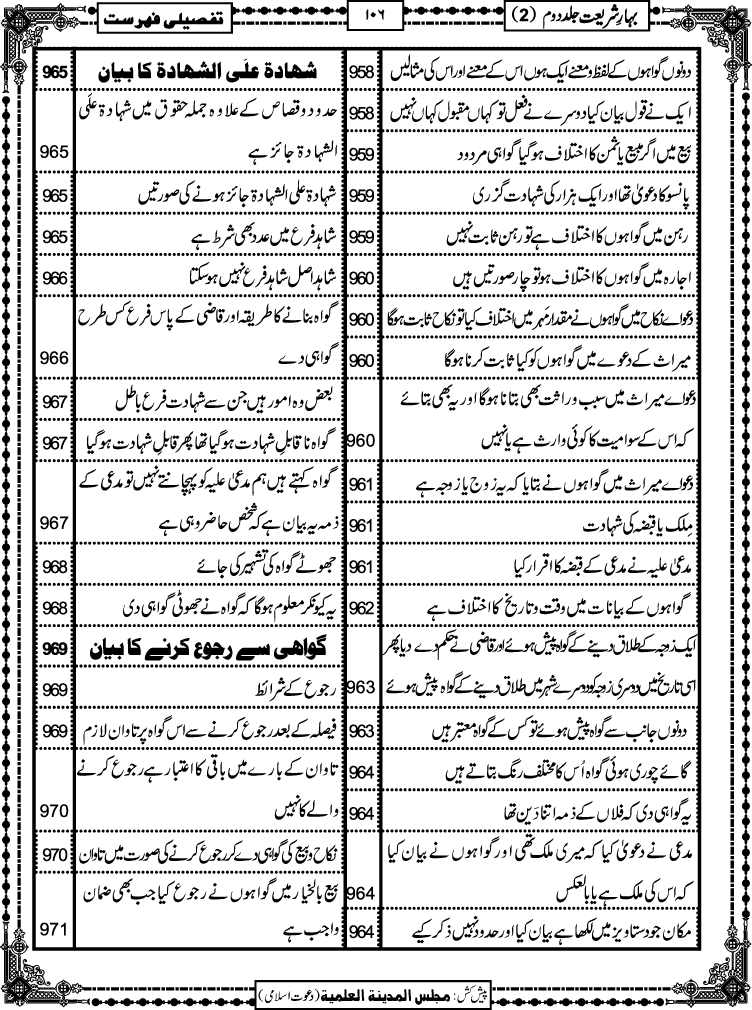 بہارِشریعت جلد دوم (2)
۱۰۶
تفصیلی فہرست
دونوں گواہوں کے لفظ و معنے ایک ہوں اس کے معنے اور اس کی مثالیں 958
ایک نے قول بیان کیا دوسرے نے فعل تو کہاں مقبول کہاں نہیں 958
بیع میں اگر مبیع یا ثمن کا اختلاف ہو گیا گواہی مردود 959
پانسو کا دعویٰ تھا اور ایک ہزار کی شہادت گزری 959
رہن میں گواہوں کا اختلاف ہے تو رہن ثابت نہیں 959
اجارہ میں گواہوں کا اختلاف ہو تو چار صورتیں ہیں 960
دعوائے نکاح میں گواہوں نے مقدارِ مَہر میں اختلاف کیا تو نکاح ثابت ہوگا 960
میراث کے دعوے میں گواہوں کو کیا ثابت کرنا ہوگا 960
دعوائے میراث میں سبب وراثت بھی بتانا ہوگا اور یہ بھی بتائے
کہ اس کے سوا میت کا کوئی وارث ہے یا نہیں 960
دعوائے میراث میں گواہوں نے بتایا کہ یہ زوج یا زوجہ ہے 961
مِلک یا قبضہ کی شہادت 961
مدعیٰ علیہ نے مدعی کے قبضہ کا اقرار کیا 961
گواہوں کے بیانات میں وقت و تاریخ کا اختلاف ہے 962
ایک زوجہ کے طلاق دینے کے گواہ پیش ہوئے اور قاضی نے حکم دے دیا پھر
اسی تاریخ میں دوسری زوجہ کو دوسرے شہر میں طلاق دینے کے گواہ پیش ہوئے 963
دونوں جانب سے گواہ پیش ہوئے تو کس کے گواہ معتبر ہیں 963
گائے چوری ہوئی گواہ اُس کا مختلف رنگ بتاتے ہیں 964
یہ گواہی دی کہ فلاں کے ذمہ اتنا دَین تھا 964
مدعی نے دعویٰ کیا کہ میری ملک تھی اور گواہوں نے بیان کیا
کہ اس کی ملک ہے یا بالعکس 964
مکان جو دستاویز میں لکھا ہے بیان کیا اور حدود نہیں ذکر کیے 964
شھادۃ علَی الشھادۃ کا بیان 965
حدود و قصاص کے علاوہ جملہ حقوق میں شہادۃ علَی
الشہادۃ جائز ہے 965
شہادۃ علی الشہادۃ جائز ہونے کی صورتیں 965
شاہد فرع میں عدد بھی شرط ہے 965
شاہد اصل شاہد فرع نہیں ہو سکتا 966
گواہ بنانے کا طریقہ اور قاضی کے پاس فرع کس طرح
گواہی دے 966
بعض وہ امور ہیں جن سے شہادت فرع باطل 967
گواہ ناقابلِ شہادت ہو گیا تھا پھر قابلِ شہادت ہو گیا 967
گواہ کہتے ہیں ہم مدعیٰ علیہ کو پہچانتے نہیں تو مدعی کے
ذمہ یہ بیان ہے کہ شخص حاضر وہی ہے 967
جھوٹے گواہ کی تشہیر کی جائے 968
یہ کیونکر معلوم ہوگا کہ گواہ نے جھوٹی گواہی دی 968
گواھی سے رجوع کرنے کا بیان 969
رجوع کے شرائط 969
فیصلہ کے بعد رجوع کرنے سے اس گواہ پر تاوان لازم 969
تاوان کے بارے میں باقی کا اعتبار ہے رجوع کرنے
والے کا نہیں 970
نکاح و بیع کی گواہی دے کر رجوع کرنے کی صورت میں تاوان 970
بیع بالخیار میں گواہوں نے رجوع کیا جب بھی ضمان
واجب ہے 971
پیش کش: مجلس المدینۃ العلمیۃ (دعوتِ اسلامی)